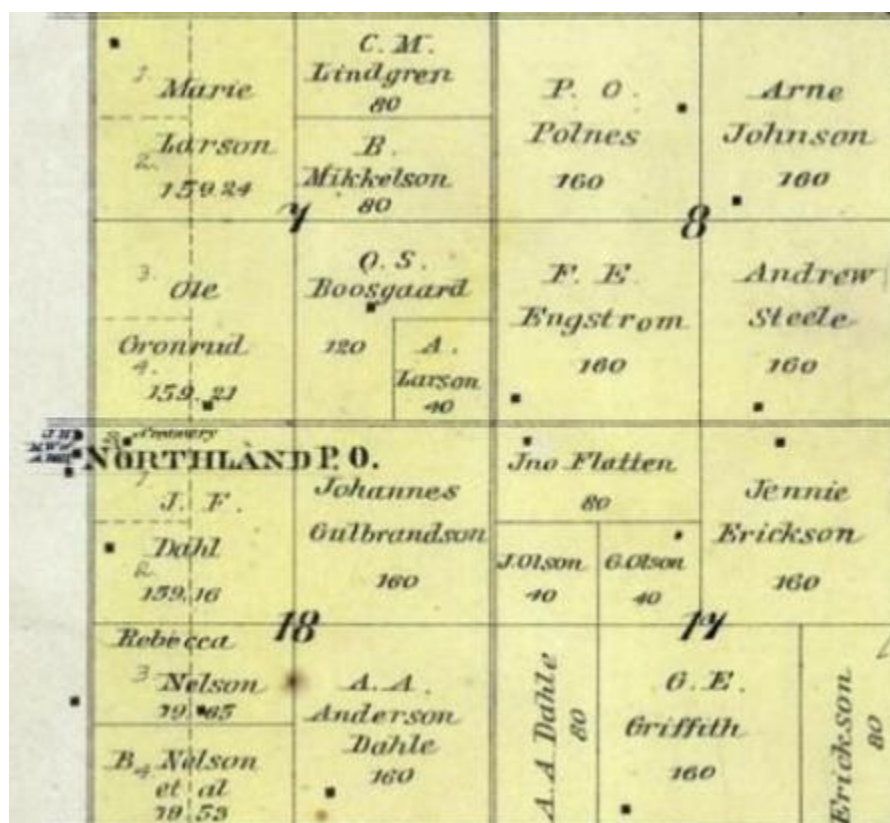 1.
Marie
Larson
2.
159.24
C. M.
Lindgren
80
B.
Mikkelson
80
7
P. O.
Polnes
160
Arne
Johnson
160
8
3.
Ole
Gronrud
4.
159.21
O. S.
Boosgaard
120
A.
Larson
40
F. E.
Engstrom
160
Andrew
Steele
160
NORTHLAND P. O.
1
J. F.
Dahl
2.
159.16
Johannes
Gulbrandson
160
Jno Flatten
80
J. Olson
40
G. Olson
40
Jennie
Erickson
160
18
17
Rebecca
3
Nelson
79.65
B. Nelson
4
et al
79.53
A. A.
Anderson
Dahle
160
A. A Dahle
80
G. E.
Griffith
160
Erickson
80